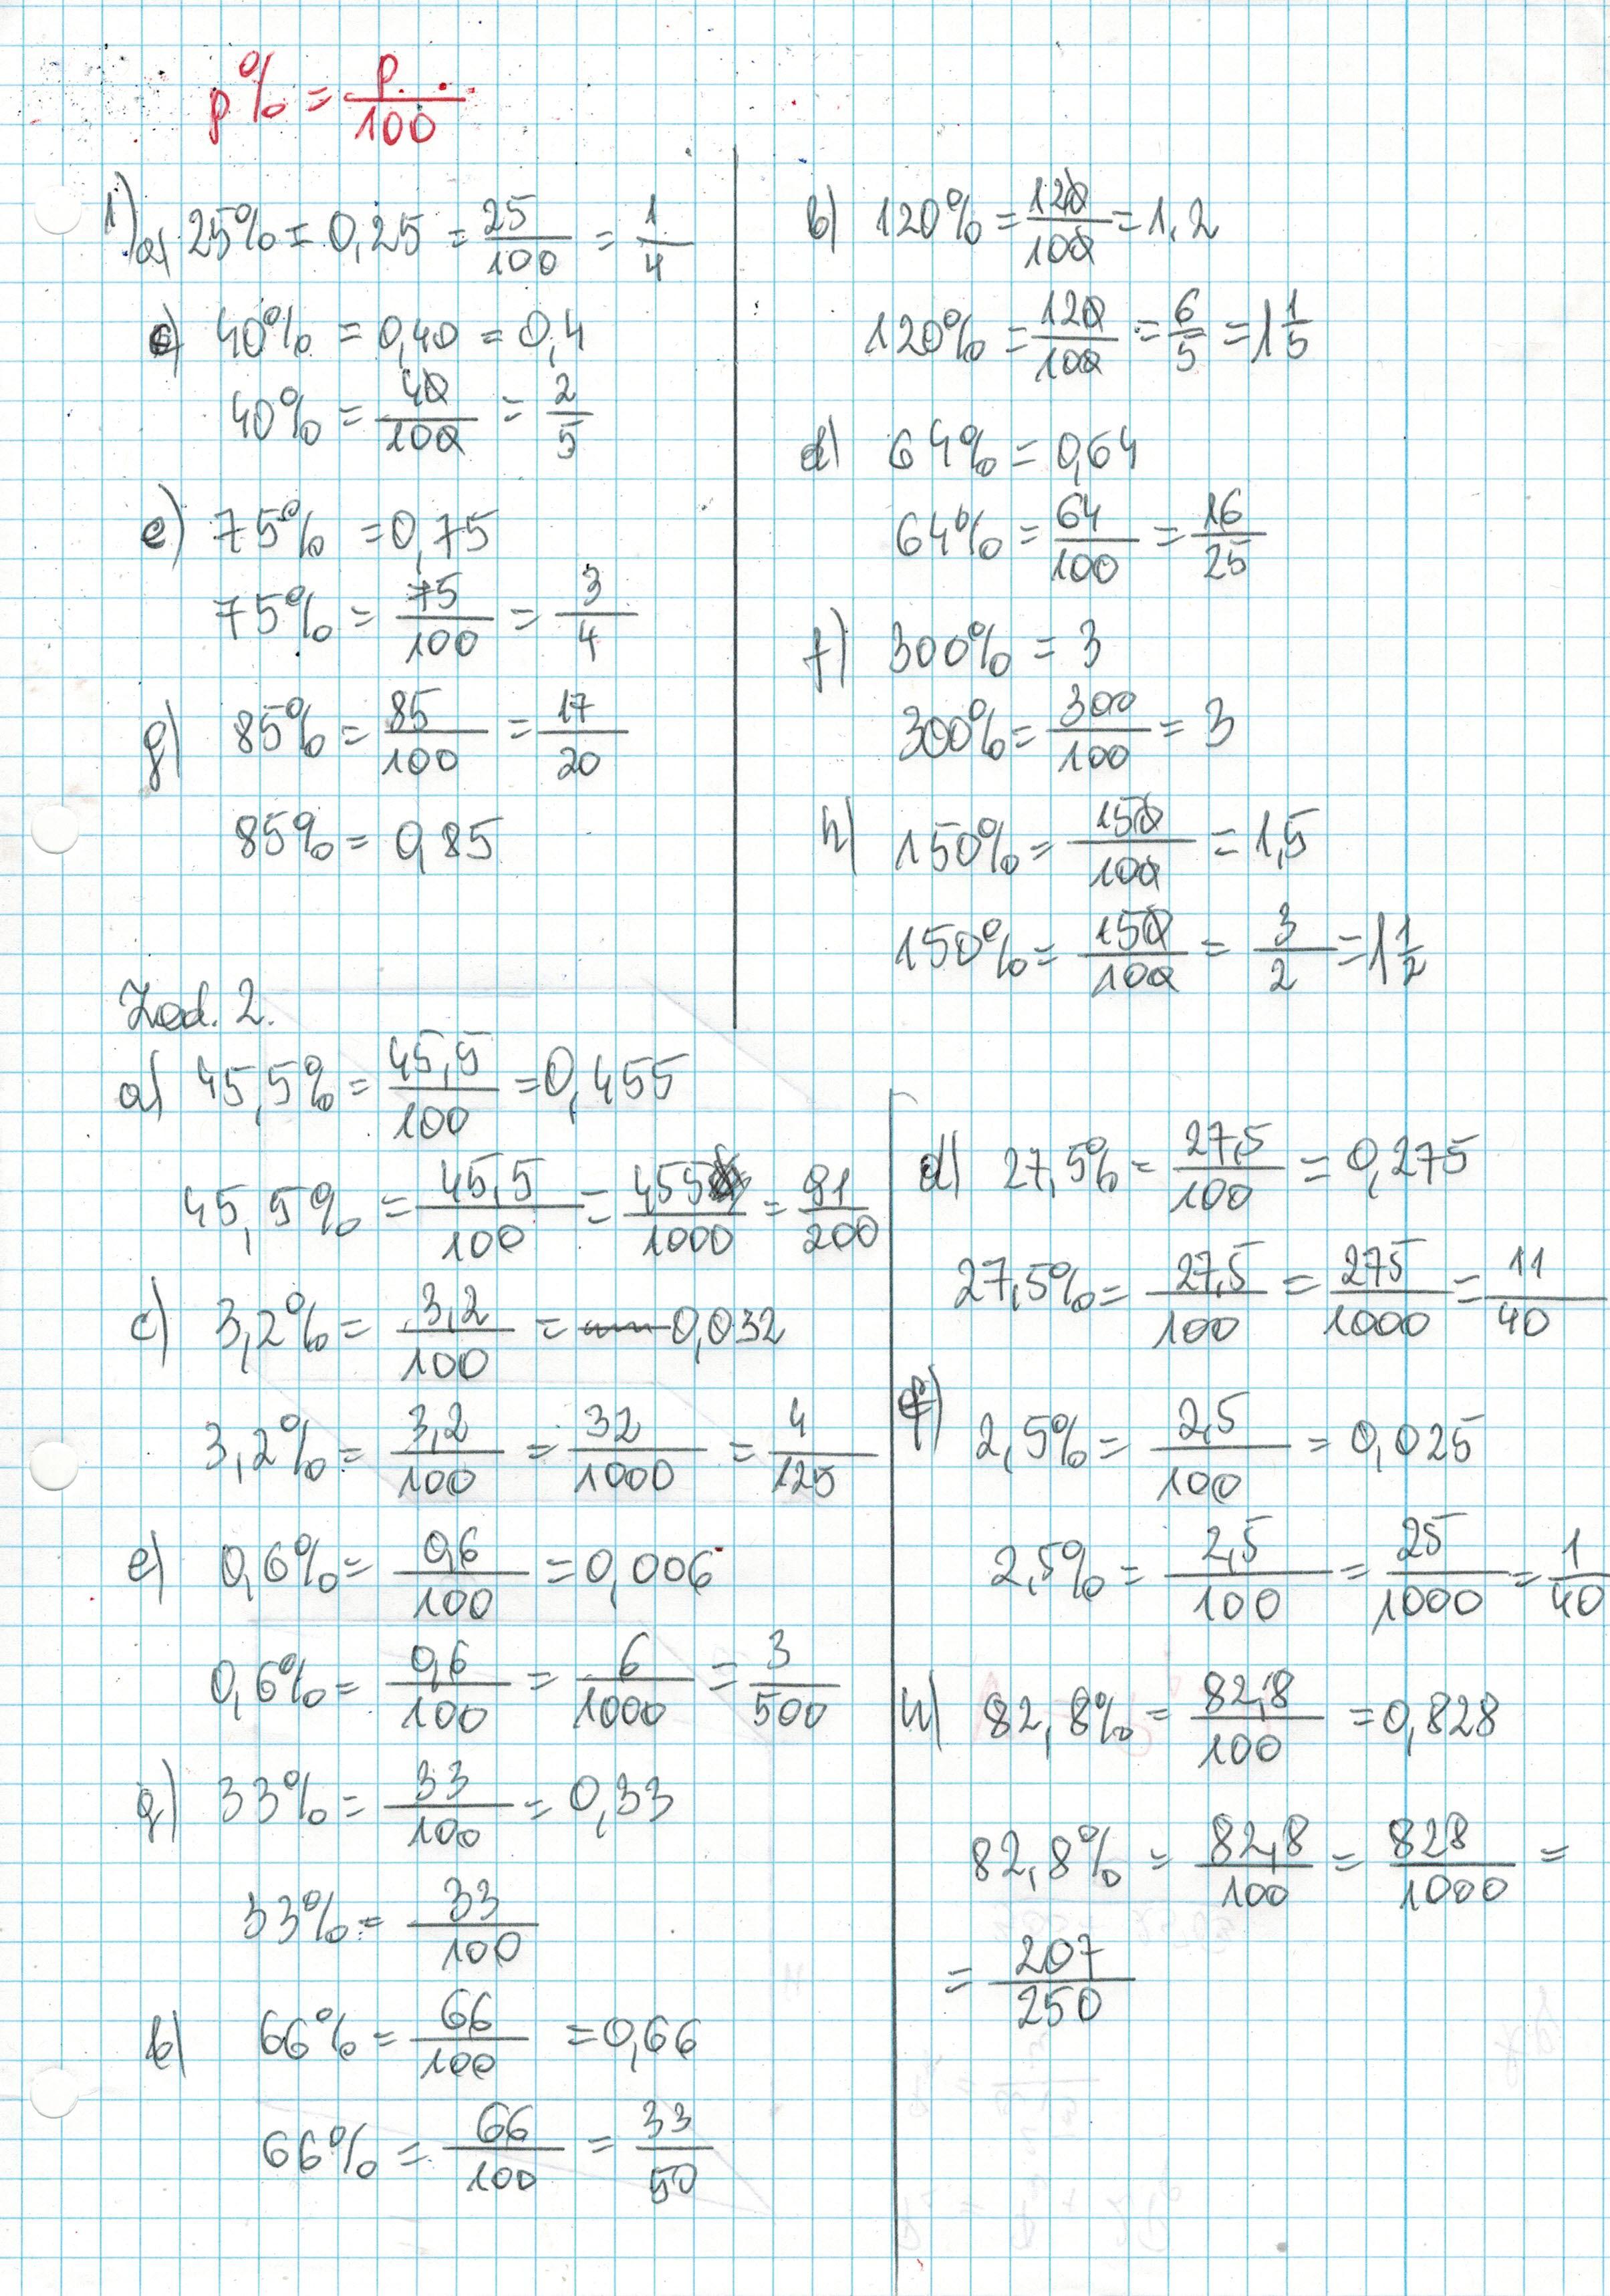 p% = p/100
1) a) 25% = 0,25 = 25/100 = 1/4
c) 40% = 0,40 = 0,4
40% = 40/100 = 2/5
e) 75% = 0,75
75% = 75/100 = 3/4
g) 85% = 85/100 = 17/20
85% = 0,85
b) 120% = 120/100 = 1,2
120% = 120/100 = 6/5 = 1 1/5
d) 64% = 0,64
64% = 64/100 = 16/25
f) 300% = 3
300% = 300/100 = 3
h) 150% = 150/100 = 1,5
150% = 150/100 = 3/2 = 1 1/2
Zad. 2.
a) 45,5% = 45,5/100 = 0,455
45,5% = 45,5/100 = 455/1000 = 91/200
c) 3,2% = 3,2/100 = 0,032
3,2% = 3,2/100 = 32/1000 = 4/125
e) 0,6% = 0,6/100 = 0,006
0,6% = 0,6/100 = 6/1000 = 3/500
g) 33% = 33/100 = 0,33
33% = 33/100
b) 66% = 66/100 = 0,66
66% = 66/100 = 33/50
d) 27,5% = 27,5/100 = 0,275
27,5% = 27,5/100 = 275/1000 = 11/40
f) 2,5% = 2,5/100 = 0,025
2,5% = 2,5/100 = 25/1000 = 1/40
h) 82,8% = 82,8/100 = 0,828
82,8% = 82,8/100 = 828/1000 =
= 207/250